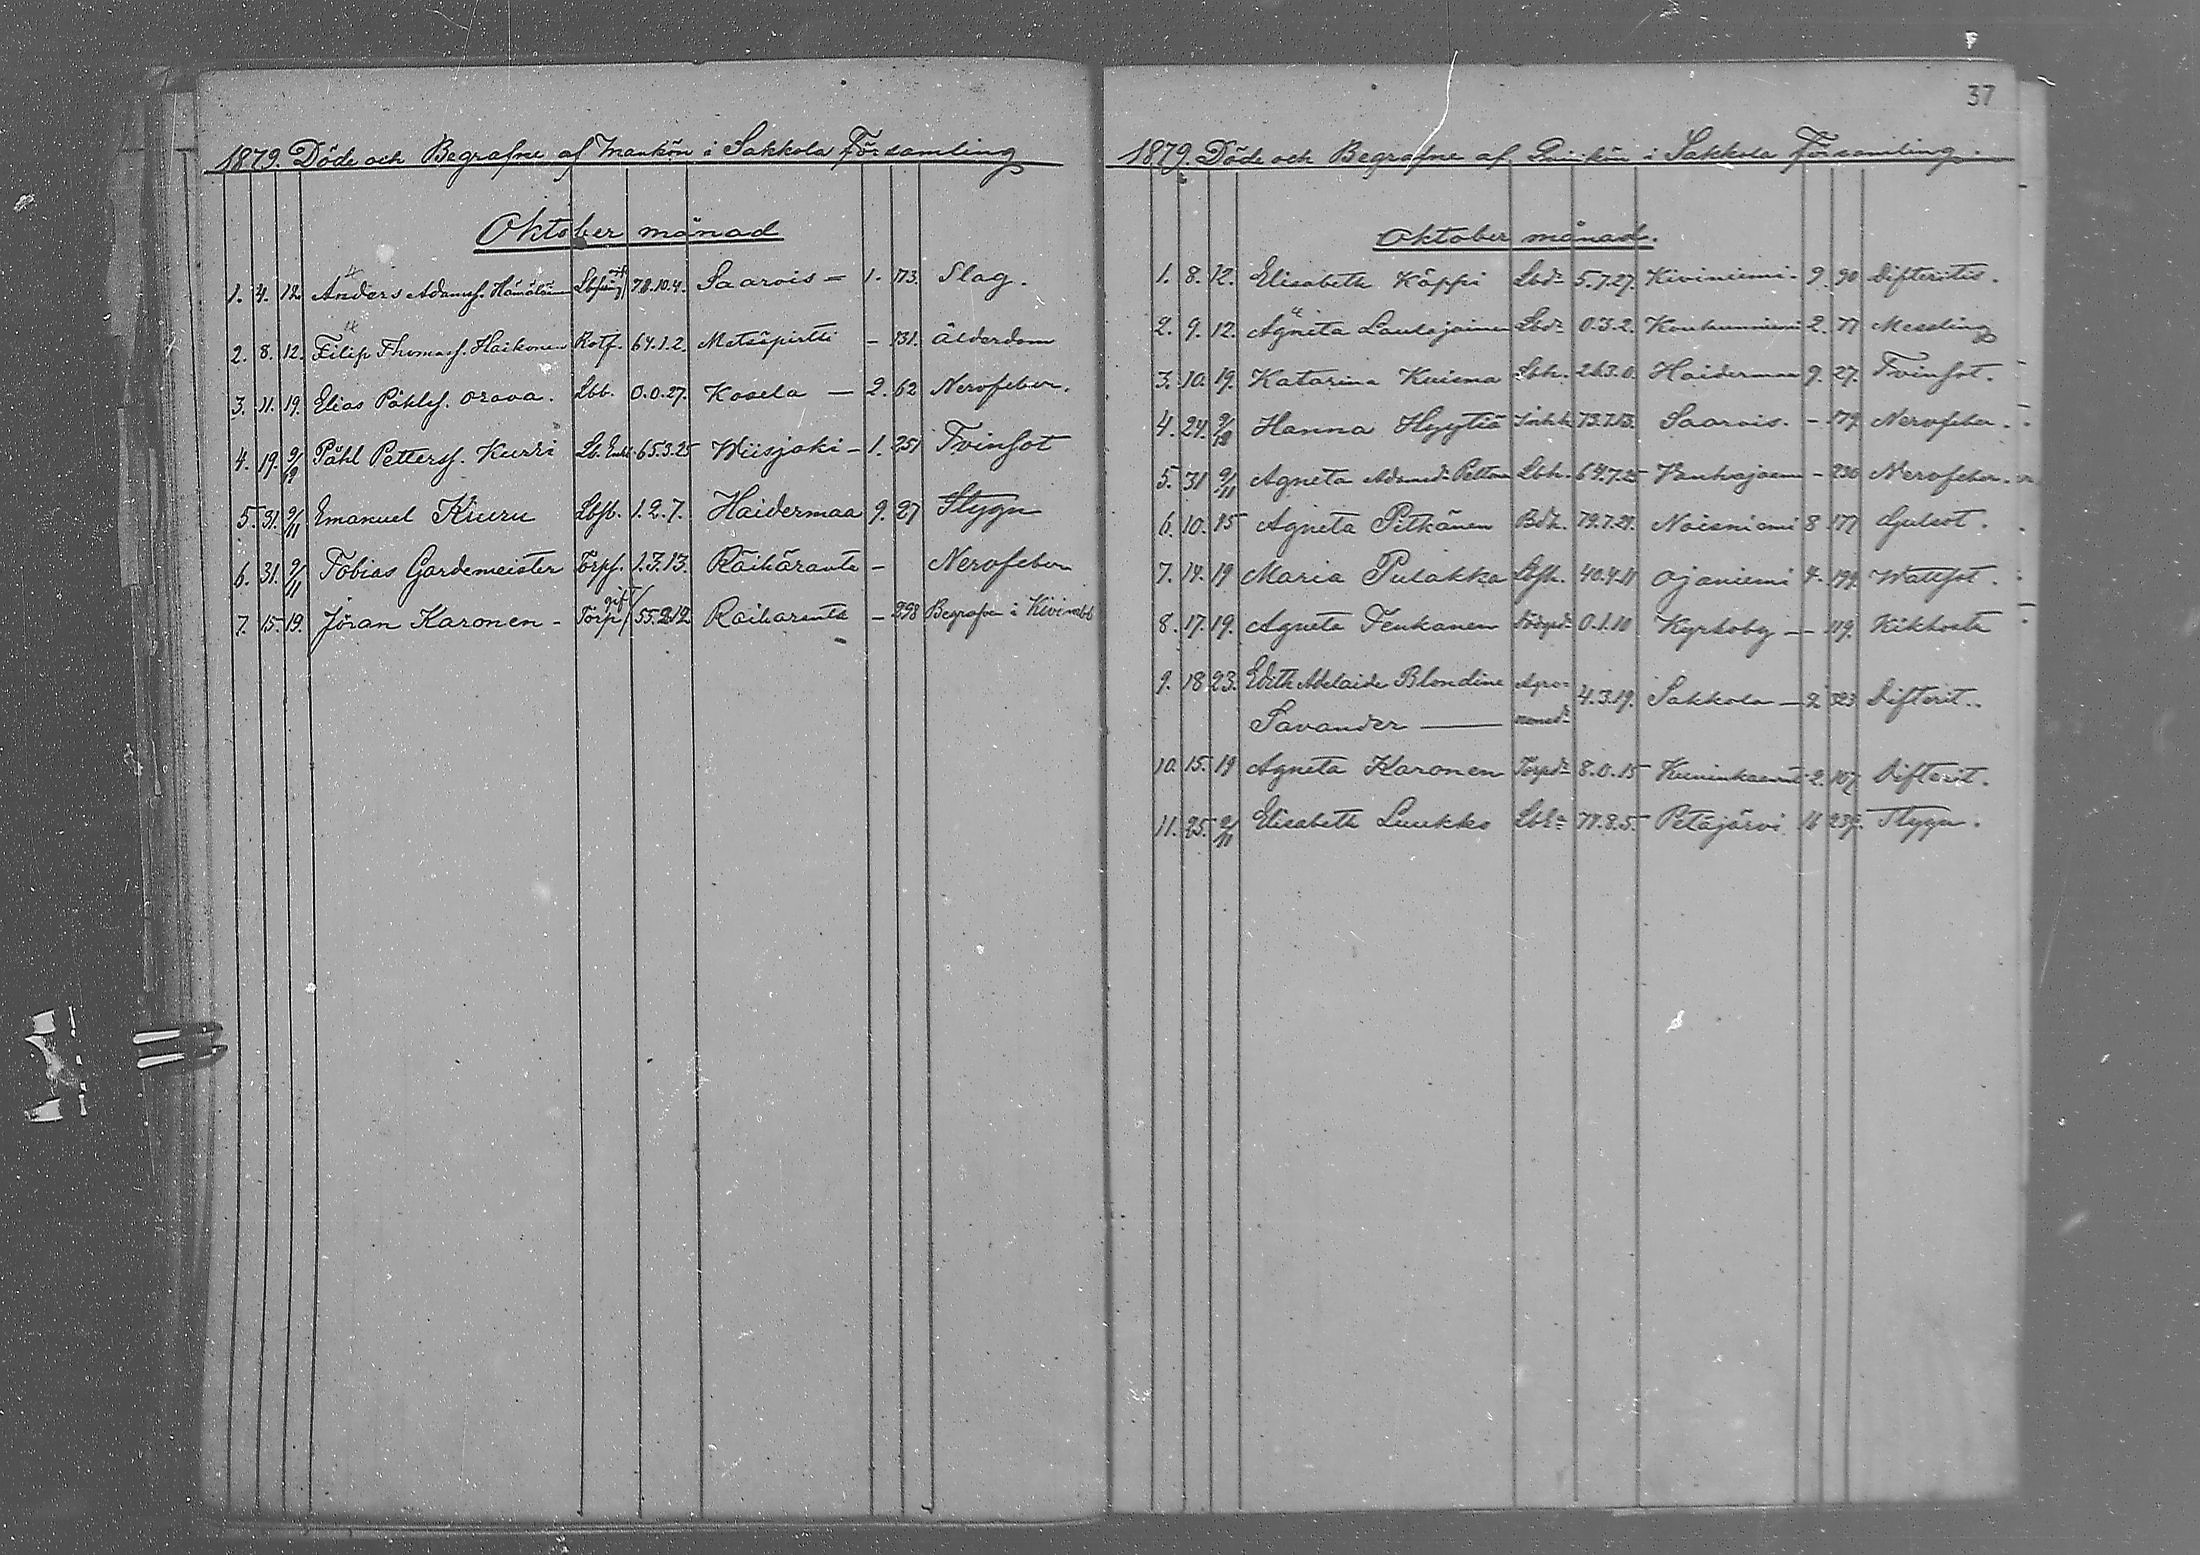 1879. Döde och Begrafne af Mankön i Sakkola Församling
Oktober månad
1. 4. 12. Anders Adamsf. Hämäläinen 78.10.4. Saarois – 1. 173. Slag.
2. 8. 12. Filip Thomasf. Haikonen Rotf. 64.1.2. Metsäpirtti – 131. Ålderdom
3. 11. 19. Elias Påhlsf. Orava. Lbb. 0.0.27. Kosela – 2. 62 Nervfeber.
4. 19. 9/12 Påhl Pettersf. Kurri Lb. Enkl. 65.3.25 Wiisjoki – 1. 251 Tvinsot
5. 31. 9/11 Emanuel Kiuru Lbfb. 1.2.7. Haidermaa 9. 27 Stygn
6. 31. 9/11 Tobias Gardemeister Torpf. 1.7.13. Räihäranta – Nervfeber
gift
7. 15. 19. Jöran Karonen – Torp 55.2.12 Raiharanta – 298 Begrafen i
37
1879. Döde och Begrafne af Qvinkön i Sakkola Församling.
Oktober månad.
1. 8. 12. Elisabeth Käppi Lbd= 5.7.27. Kiviniemi – 9. 90 Difterites.
2. 9. 12. Agneta Laulajainen Lbd= 0.3.2. 2. 77 Messling
3. 10. 19. Katarina Kuisma Lbh. 26.3.0. Haidermaa 9. 27. Tvinsot.
4. 24. Hanna Hyytiä 73.7.13. Saarois. – 179. Nervfeber.
5. 31 9/11 Agneta Adamsd= Lbh. 64.7.25 – 230 Nervfeber.
6. 10. 15 Agneta Pitkänen Bdh. 79.7.21. Noisniemi 8 177 Gulsot.
7. 14. 19 Maria Pulakka Lbfh. 40.4.11 Ojaniemi 4. 199. Wattsot.
8. 17. 19. Agneta Tenkanen 0.1.10 Kyrkoby – 119. Kikhosta
9. 18 23. Edith Adelaide Blondine Agro= 4.3.19. Sakkola – 2 323 Difterit..
Savander ——— nomed=
10. 15. 19 Agneta Karonen Torpd= 8.0.15 2. 107 Difterit.
11. 25. 9/11 Elisabeth Luukko 71.8.5. Petäjärvi 11 237. Stygn.